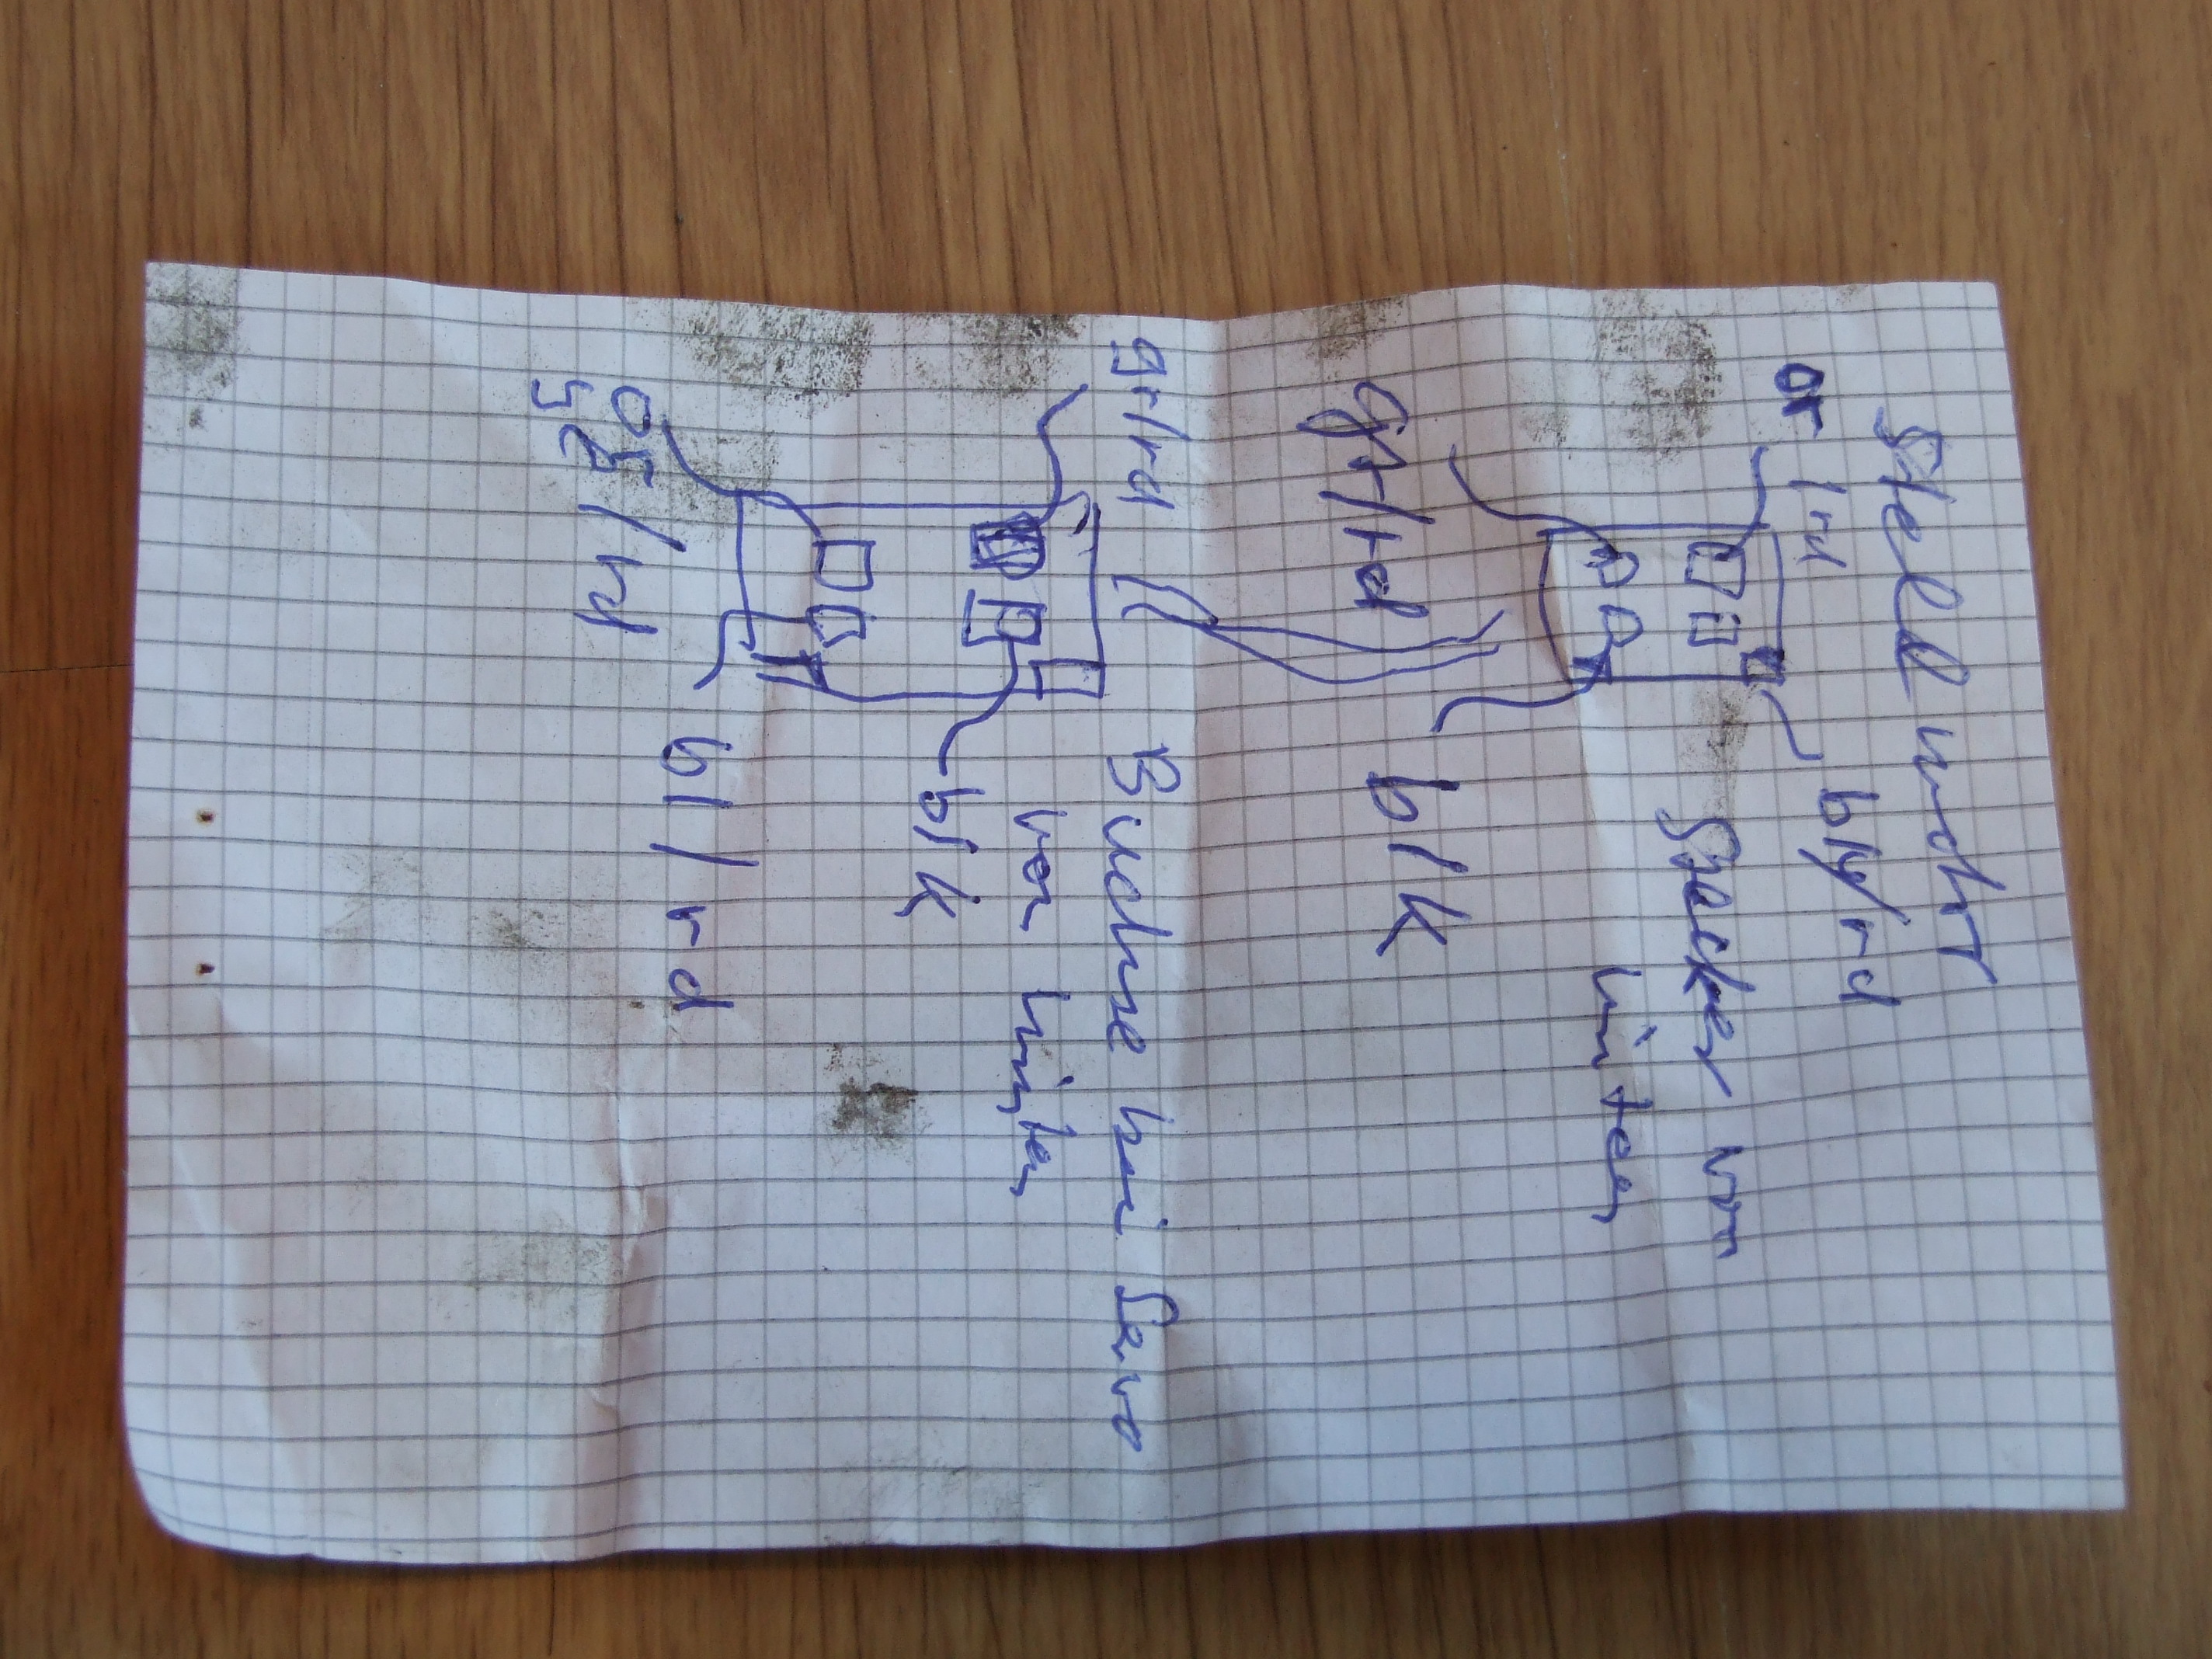 Stellmotr
or/rd
bly/rd
Stecker von
hinten
gr/rd
blk
gr/rd
Buchse bei Servo
von hinten
blk
bl/rd